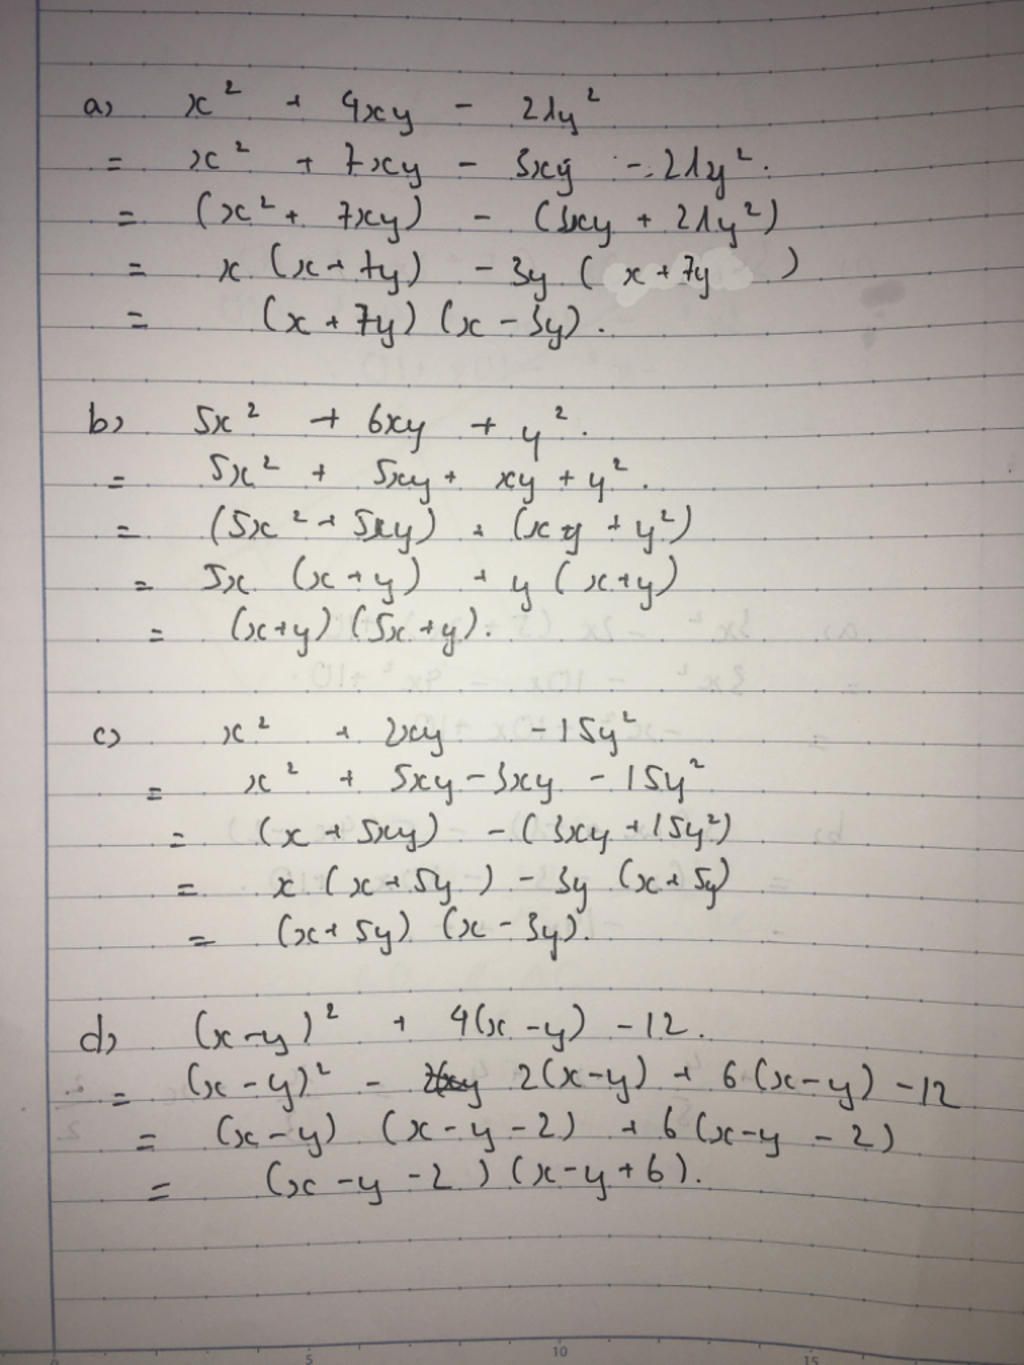 a) x² + 4xy - 21y²
= x² + 7xy - 3xy - 21y².
= (x² + 7xy) - (3xy + 21y²)
= x (x + 7y) - 3y (x + 7y)
= (x + 7y) (x - 3y).
b) 5x² + 6xy + y².
= 5x² + 5xy + xy + y².
= (5x² + 5xy) + (xy + y²)
= 5x (x + y) + y (x + y)
= (x + y) (5x + y).
c) x² + 2xy - 15y²
= x² + 5xy - 3xy - 15y²
= (x + 5xy) - (3xy + 15y²)
= x (x + 5y) - 3y (x + 5y)
= (x + 5y) (x - 3y).
d) (x - y)² + 4(x - y) - 12.
= (x - y)² - 2(x - y) + 6(x - y) - 12
= (x - y) (x - y - 2) + 6(x - y - 2)
= (x - y - 2) (x - y + 6).
5 10 15